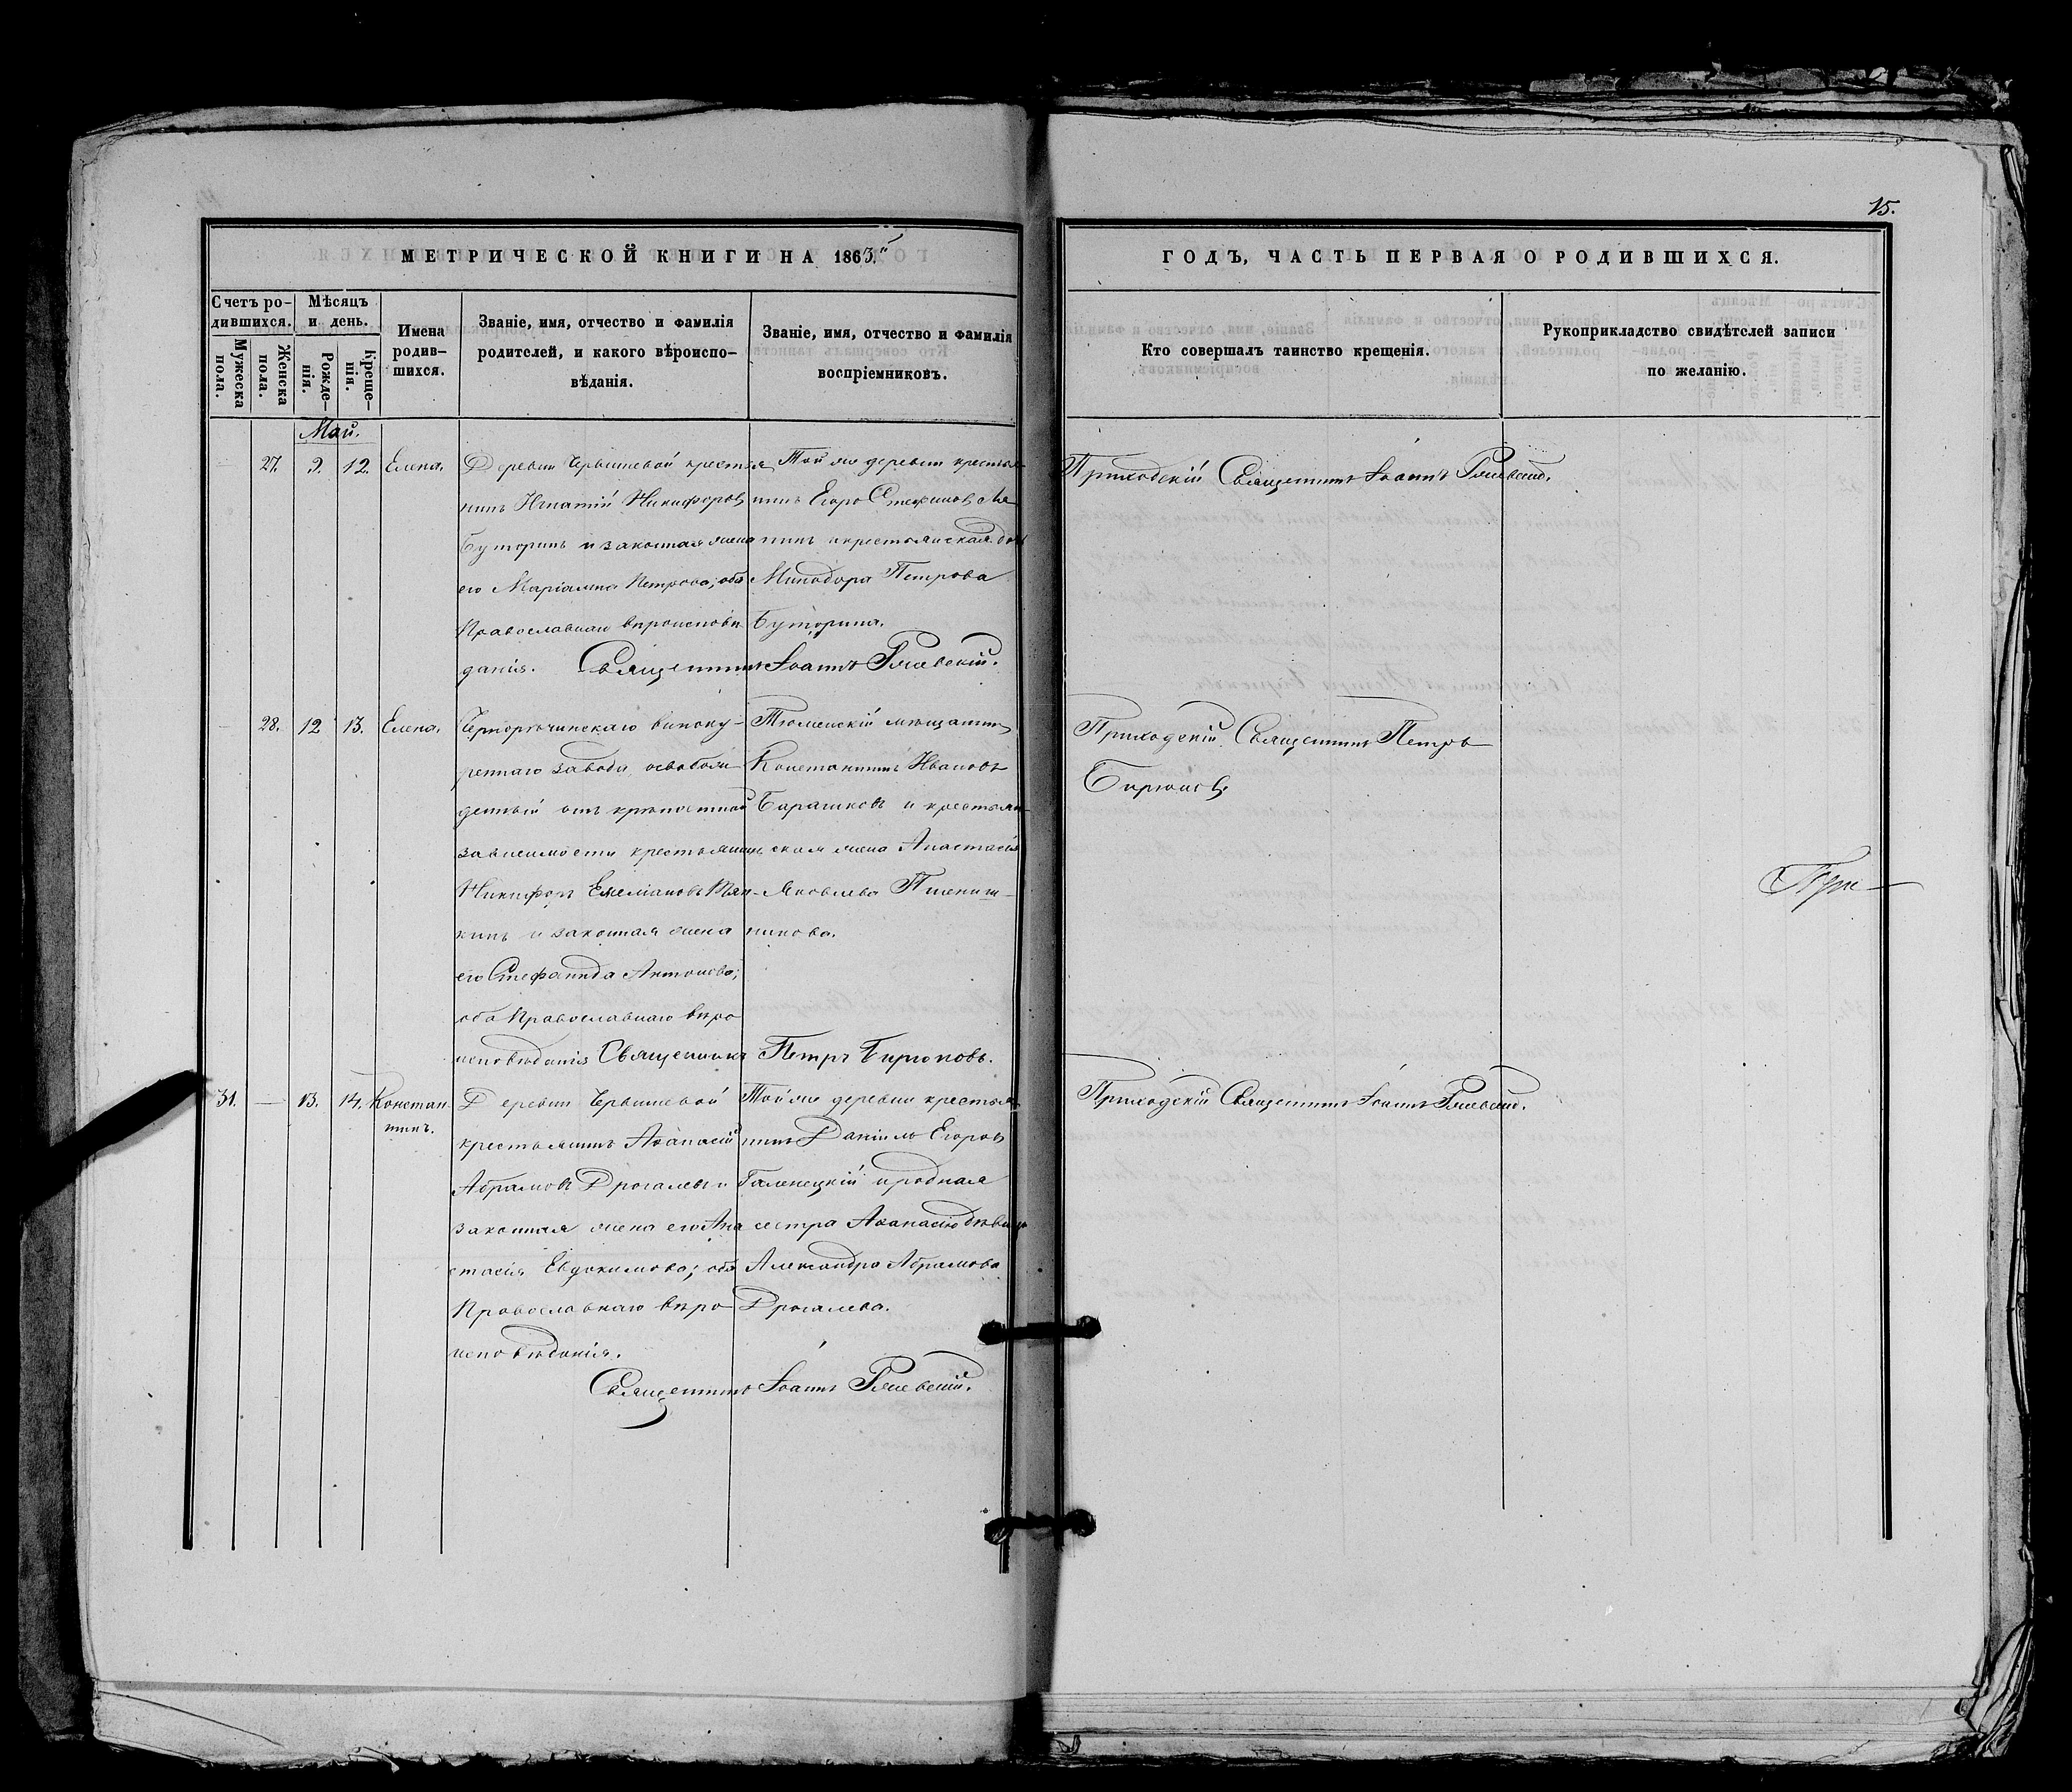 15.
МЕТРИЧЕСКОЙ КНИГИ НА 1863.й
ГОДЪ, ЧАСТЬ ПЕРВАЯ О РОДИВШИХСЯ.
Счетъ родившихся.
Мужеска пола.
Женска пола.
Мѣсяцъ и день.
Рожденія.
Крещенія.
Имена родившихся.
Званіе, имя, отчество и фамилія
родителей, и какого вѣроиспо-
вѣданія.
Званіе, имя, отчество и фамилія
воспріемниковъ.
Кто совершалъ таинство крещенія.
Рукоприкладство свидѣтелей записи
по желанію.
Май.
27. 9. 12. Елена.
Деревни Червишевой крестья
нинъ Игнатій Никифоровъ
Буторинъ и законная жена
его Маріамна Петрова; оба
Православнаго вѣроисповѣ
данія.
Той же деревни крестья
нинъ Егоръ Стефановъ
и крестьянская дочь
Минодора Петрова
Буторина.
Священникъ Іоаннъ
Приходскій Священникъ Іоаннъ
28. 12 13. Елена.
Черноречинскаго виноку-
реннаго завода, освобож-
денный отъ крѣпостной
зависимости крестьянинъ
Никифоръ Емеліановъ
кинъ и законная жена
его Стефанида Антонова;
оба Православнаго вѣро
исповѣданія
Тюменскій мѣщанинъ
Константинъ Ивановъ
Барашковъ и крестьян-
ская жена Анастасія
Яковлева Пшенич-
никова.
Священникъ Петръ Бирюковъ.
Приходскій Священникъ Петръ
Бирюковъ.
При—
31. — 13. 14. Констан
тинъ.
Деревни Червишевой
крестьянинъ Аѳанасій
Абрамовъ Дрогалевъ и
законная жена его Ана
стасія Евдокимова; оба
Православнаго вѣро
исповѣданія.
Той же деревни крестья
нинъ Даніилъ Егоровъ
Галенецкій и родная
сестра Аѳанасію дѣвица
Александра Абрамова
Дрогалева.
Священникъ Іоаннъ
Приходскій Священникъ Іоаннъ